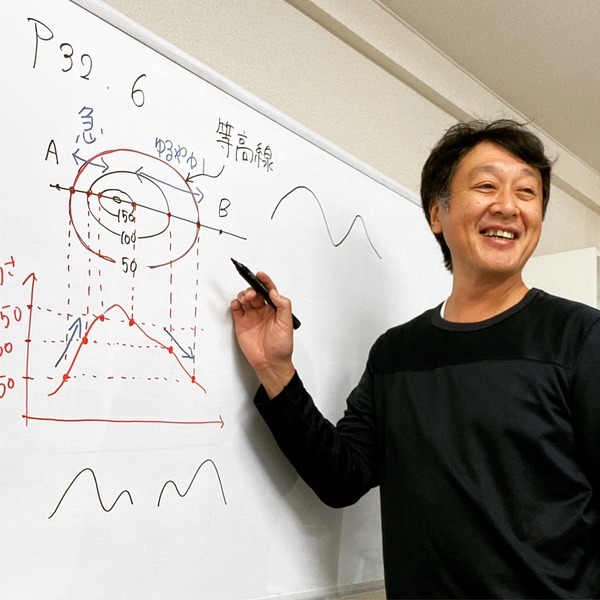 P32.6
急
ゆるやか
等高線
A
B
150
100
50
50
00
50